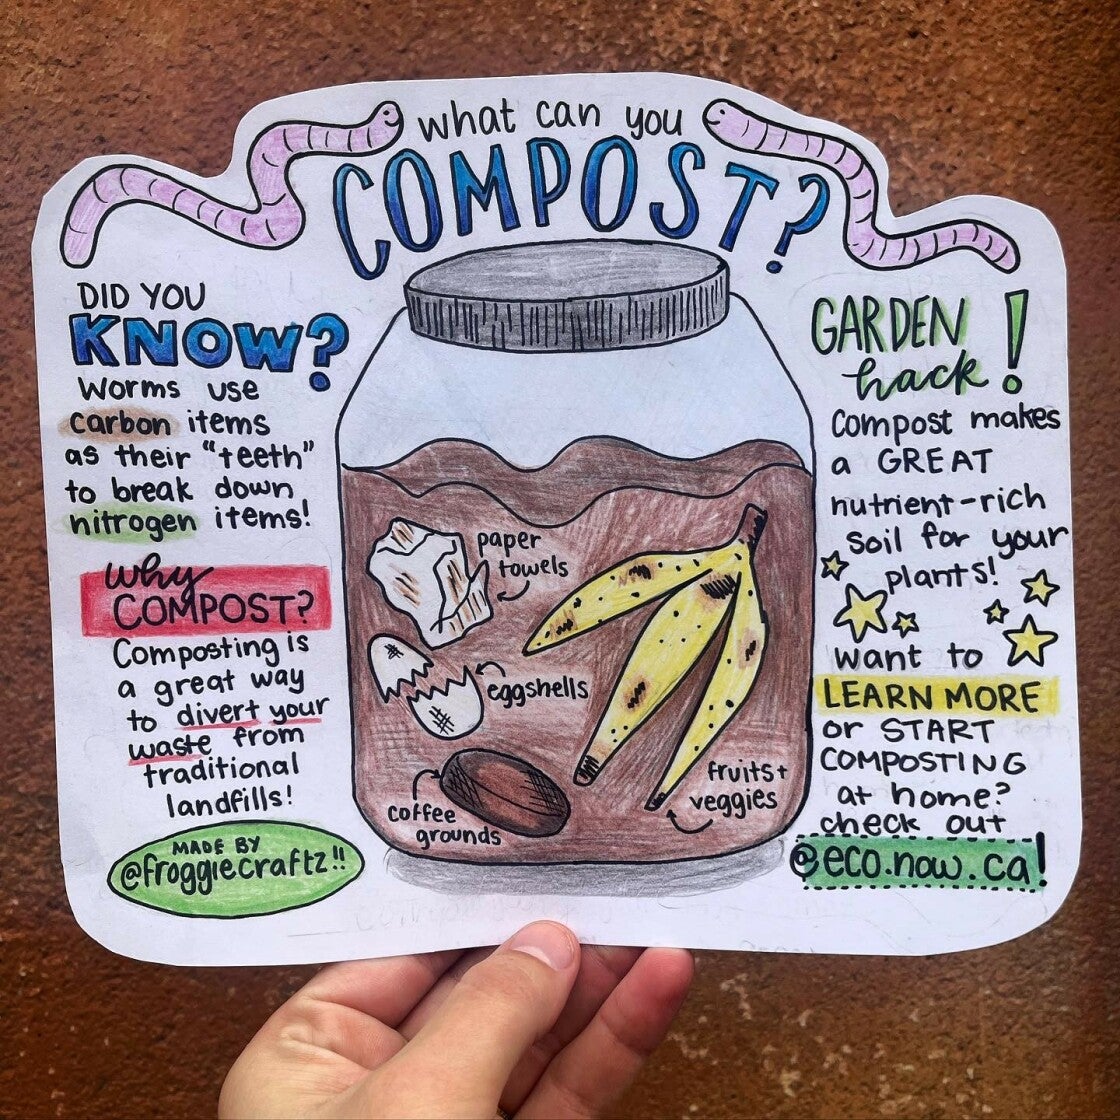 what can you
COMPOST?
DID YOU
KNOW?
Worms use
carbon items
as their "teeth"
to break down
nitrogen items!
why
COMPOST?
Composting is
a great way
to divert your
waste from
traditional
landfills!
MADE BY
@froggiecraftz!!
paper
towels
eggshells
coffee
grounds
fruits+
veggies
GARDEN
hack!
Compost makes
a GREAT
nutrient-rich
soil for your
plants!
want to
LEARN MORE
or START
COMPOSTING
at home?
check out
@eco.now.ca!